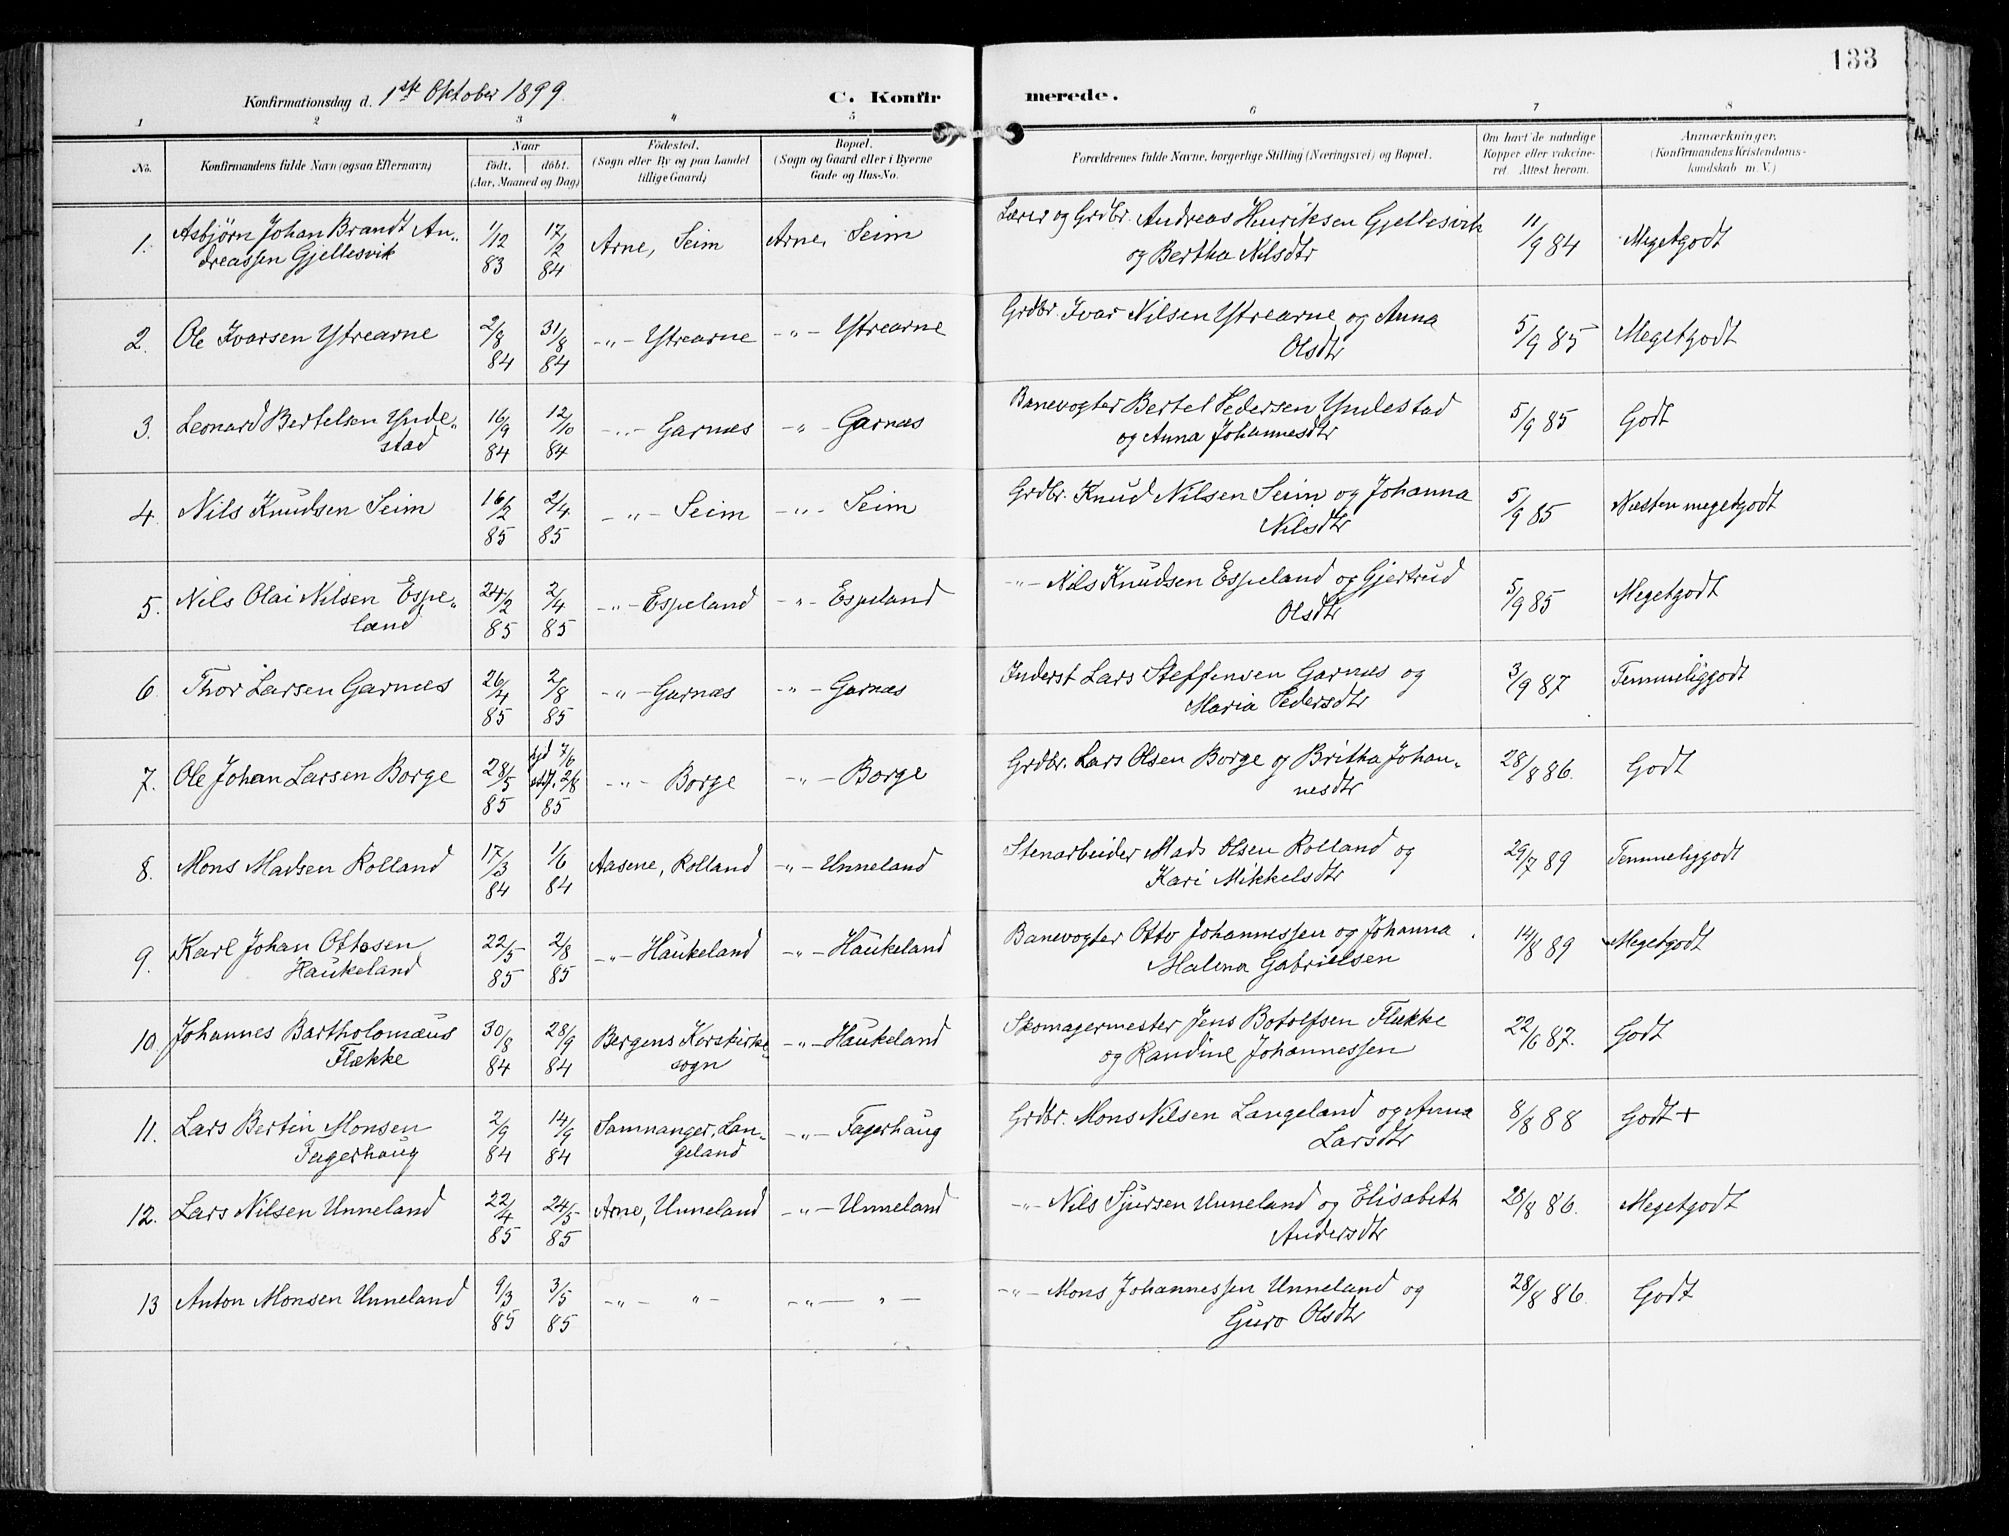 133
Konfirmationsdag d. 1ste Oktober 1899.
C. Konfir merede.
1 2 3 4 5 6 7 8
No. Konfirmandens fulde Navn (ogsaa Efternavn) Naar født. døbt. (Aar, Maaned og Dag) Fødested. (Sogn eller By og paa Landet tillige Gaard) Bopæl. (Sogn og Gaard eller i Byerne Gade og Hus-No. Forældrenes fulde Navne, borgerlige Stilling (Næringsvei) og Bopæl. Om havt de naturlige Kopper eller vakcineret. Attest herom. Anmærkninger. (Konfirmandens Kristendomskundskab m. V.)
1. Asbjörn Johan Brandt An„ 1/12 17/2 Arne, Seim Arne, Seim Lærer og Grdbr. Andreas Henriksen Gjellesvik 11/9 84 Megetgodt
dreassen Gjellesvik 83 84 og Bertha Nilsdtr
2. Ole Ivarsen Ytrearne 2/8 31/8 -„- Ytrearne -„- Ytrearne Grdbr. Ivar Nilsen Ytrearne og Anna 5/9 85 Megetgodt
84 84 Olsdtr
3. Leonard Bertelsen Ynde„ 16/9 12/10 -„- Garnæs -„- Garnæs Banevogter Bertel Pedersen Yndestad 5/9 85 Godt
stad 84 84 og Anna Johannesdtr
4. Nils Knudsen Seim 16/2 2/4 -„- Seim -„- Seim Grdbr. Knud Nilsen Seim og Johanna 5/9 85 Næsten megetgodt
85 85 Nilsdtr
5. Nils Olai Nilsen Espe„ 24/2 2/4 -„- Espeland -„- Espeland -„- Nils Knudsen Espeland og Gjertrud 5/9 85 Megetgodt
land 85 85 Olsdtr
6. Thor Larsen Garnæs 26/4 2/8 -„- Garnæs -„- Garnæs Inderst Lars Steffensen Garnæs og 3/9 87 Temmeliggodt
85 85 Maria Pedersdtr
7. Ole Johan Larsen Borge 28/5 hjd 7/6 stdf. 2/8 -„- Borge -„- Borge Grdbr. Lars Olsen Borge og Britha Johan„ 28/8 86. Godt
85 85 nesdtr
8. Mons Madsen Rolland 17/3 1/6 Aasene, Rolland -„- Unneland Stenarbeider Mads Olsen Rolland og 29/7 89 Temmeliggodt
84 84 Kari Mikkelsdtr
9. Karl Johan Ottosen 22/5 2/8 -„- Haukeland -„- Haukeland Banevogter Otto Johannessen og Johanna 14/8 89 Megetgodt
Haukeland 85 85 Malena Gabrielsen
10. Johannes Bartholomæus 30/8 28/9 Bergens Korskirke -„- Haukeland Skomagermester Jens Botolfsen Flække 22/6 87. Godt
Flække 84 84 sogn og Randine Johannessen
11. Lars Bertin Monsen 2/9 14/9 Samnanger, Lan„ -„- Fagerhaug Grdbr. Mons Nilsen Langeland og Anna 8/8 88 Godt +
Fagerhaug 84 84 geland Larsdtr
12. Lars Nilsen Unneland 22/4 24/5 Arne, Unneland -„- Unneland -„- Nils Sjursen Unneland og Elisabeth 28/8 86. Megetgodt
85 85 Andersdtr
13 Anton Monsen Unneland 9/3 3/5 -„- „ - -„- „ - -„- Mons Johannessen Unneland og 28/8 86. Godt
85 85 Guro Olsdtr